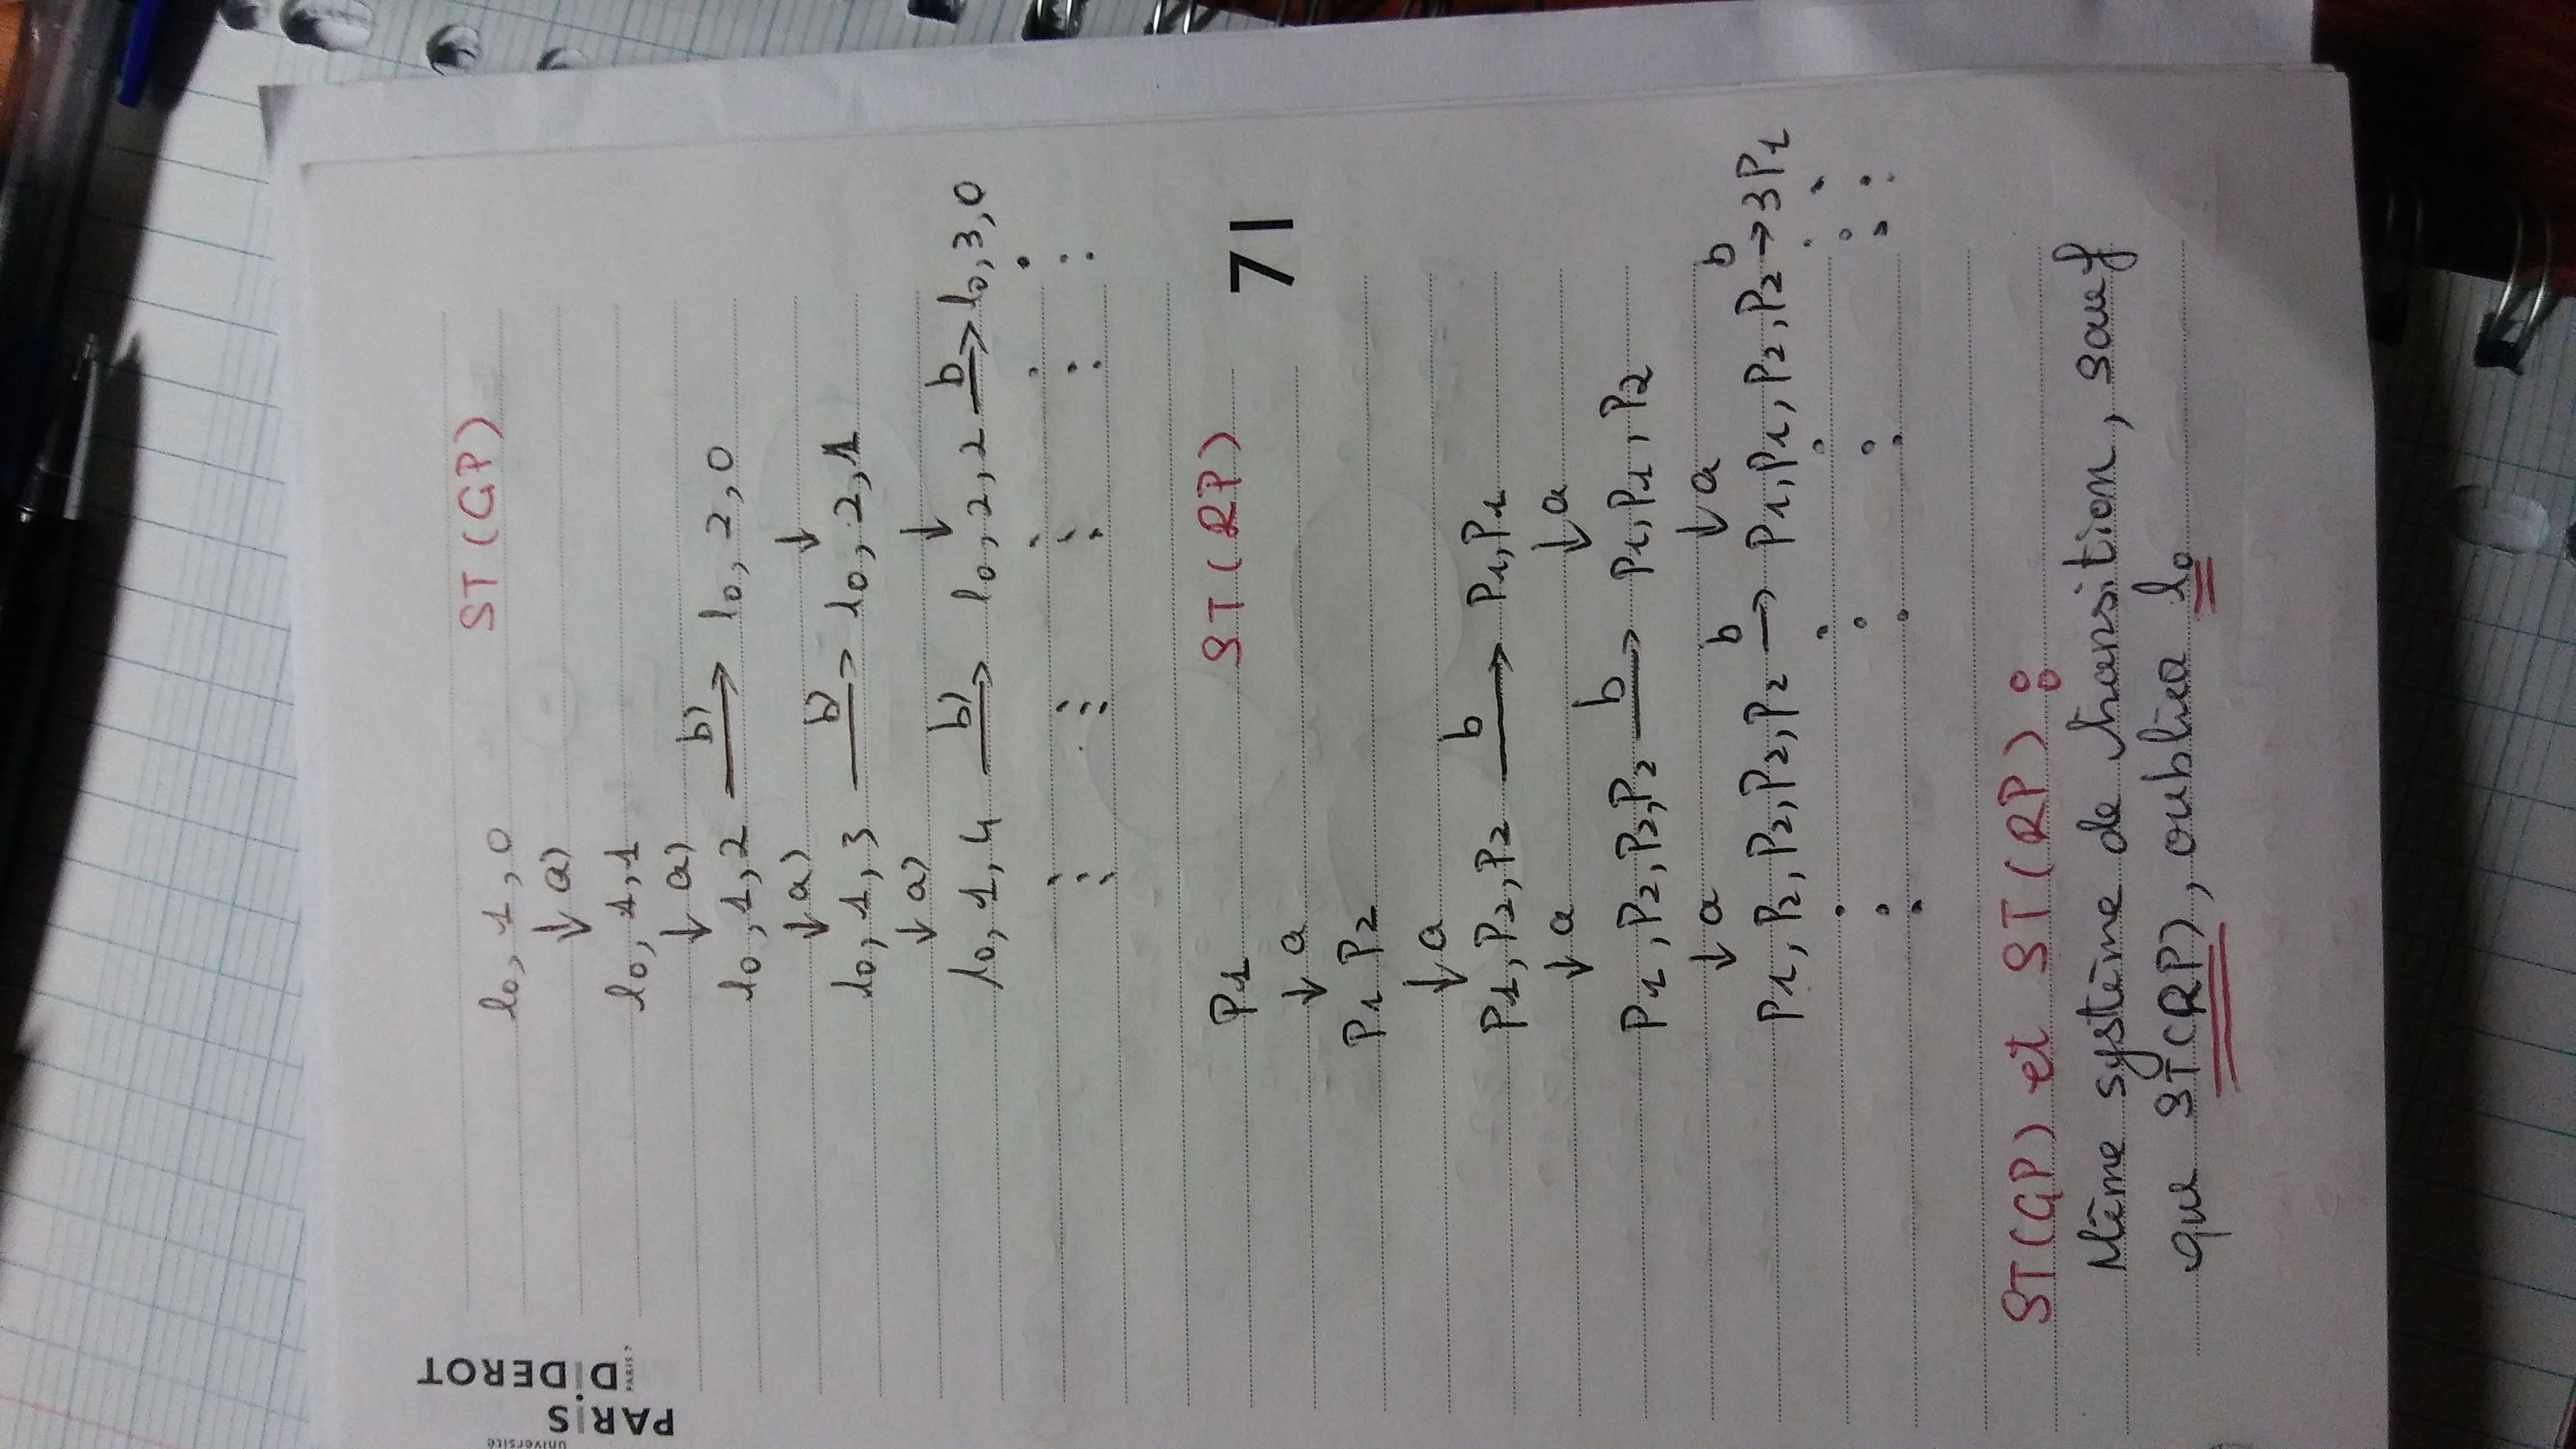 université
PARiS
DiDEROT
PARIS 7
l₀, 1, 0 ST(GP)
↓ a)
l₀, 1, 1
↓ a)
l₀, 1, 2 →b) l₀, 2, 0
↓ a) ↓
l₀, 1, 3 →b) l₀, 2, 1
↓ a) ↓
l₀, 1, 4 →b) l₀, 2, 2 →b l₀, 3, 0
⋮ ⋮ ⋮ ⋮ ⋮
P1 ST(RP)
71
↓ a
P1 P2
↓ a
P1, P2, P2 →b P1, P1
↓ a ↓ a
P1, P2, P2, P2 →b P1, P1, P2
↓ a ↓ a
P1, P2, P2, P2, P2 →b P1, P1, P2, P2 →b 3P1
⋮ ⋮ ⋮ ⋮ ⋮
ST(GP) et ST(RP) :
Même système de transition, sauf
que ST(RP), oublier l₀